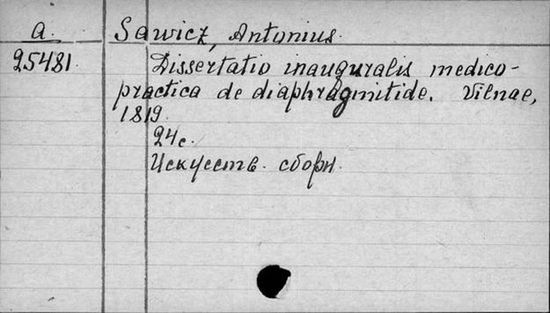 a.
Sawicz, Antonius.
25481.
Dissertatio inauguralis medico-
practica de diaphragmitide. Vilnae,
1819.
24c.
Искусств. сборн.